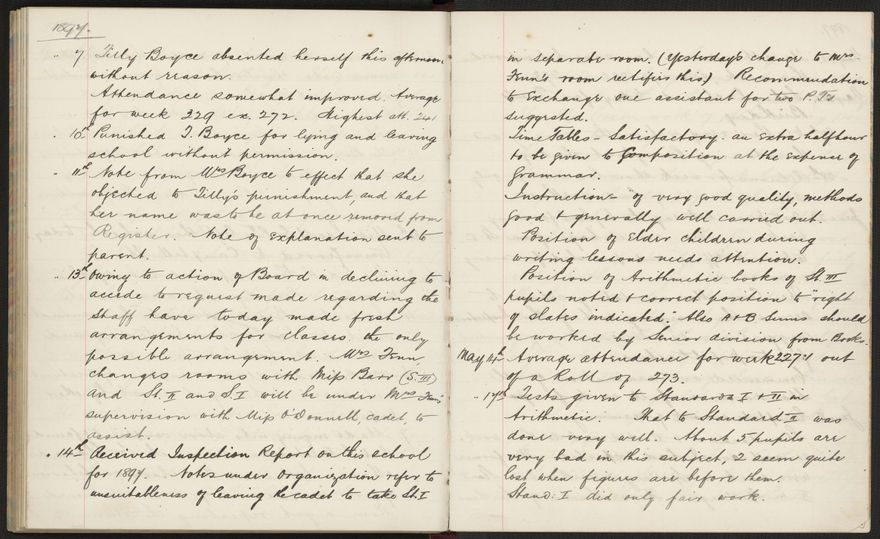 1897.
" 7 Tilly Boyce absented herself this afternoon
without reason.
Attendance somewhat improved. Average
for week 229 ex. 272. Highest att. 241
" 10th Punished T. Boyce for lying and leaving
school without permission.
" 11th Note from Mrs Boyce to effect that she
objected to Tilly's punishment, and that
her name was to be at once removed from
Register. Note of explanation sent to
parent.
" 13th Owing to action of Board in declining to
accede to request made regarding the
staff have today made fresh
arrangements for classes, the only
possible arrangement. Mrs Fenn
changes rooms with Miss Barr (S. III)
and St. II and S. I will be under Mrs Fenn's
supervision with Miss O'Donnell, cadet, to
assist.
" 14th Received Inspection Report on this school
for 1897. Notes under Organization refer to
unsuitableness of leaving the cadet to take St. I
in separate room. (Yesterday's change to Mrs
Fenn's room rectifies this) Recommendation
to exchange one assistant for two P.Ts
suggested.
Time Tables - Satisfactory - an extra half hour
to be given to Composition at the expense of
Grammar.
Instruction - "of very good quality, methods
good & generally well carried out.
Position of Elder children during
writing lessons needs attention.
Position of Arithmetic books of St. III
pupils noted & correct position to "right
of slates indicated." Also A & B Sums should
be worked by Senior division from Books.
May 14th Average attendance for week 227.4 out
of a Roll of 273.
" 17th Tests given to Standards I & II in
Arithmetic. That to Standard II was
done very well. About 5 pupils are
very bad in this subject, 2 seem quite
lost when figures are before them.
Stand: I did only fair work.